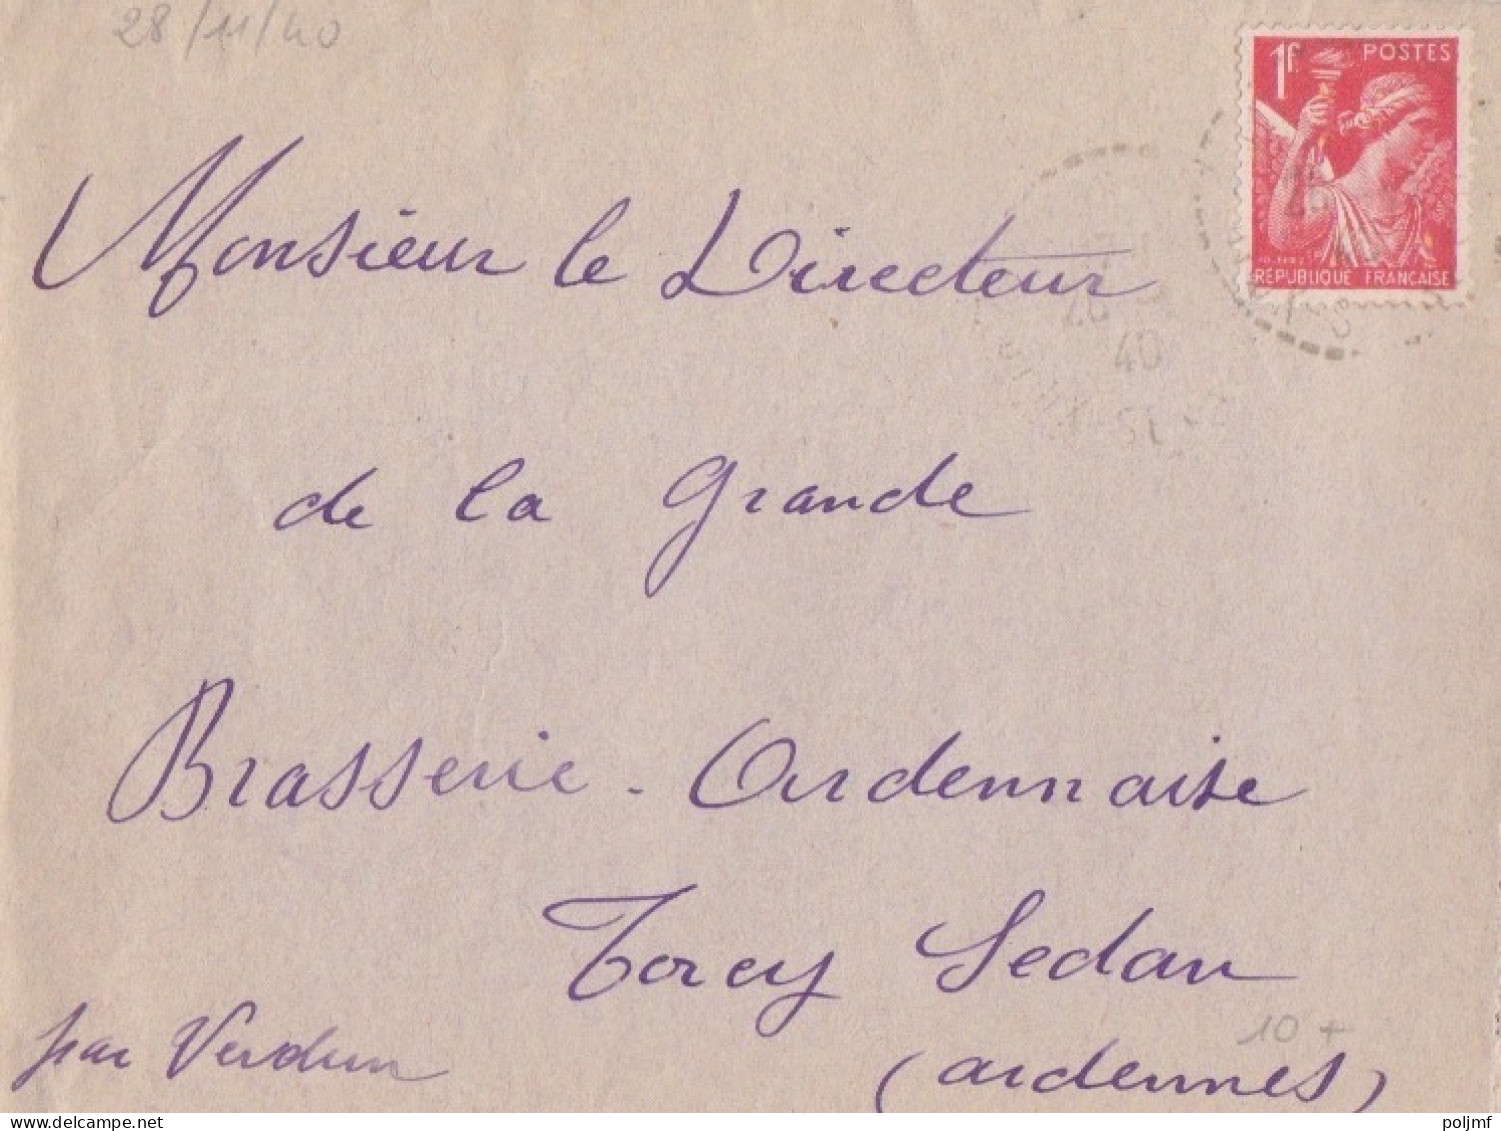 28/11/40
1F. POSTES
RÉPUBLIQUE FRANÇAISE
Monsieur le Directeur
26
40
de la Grande
Brasserie - Ardennaise
Torcy Sedan
10 +
par Verdun
(ardennes)
delcampe.net
poljmf